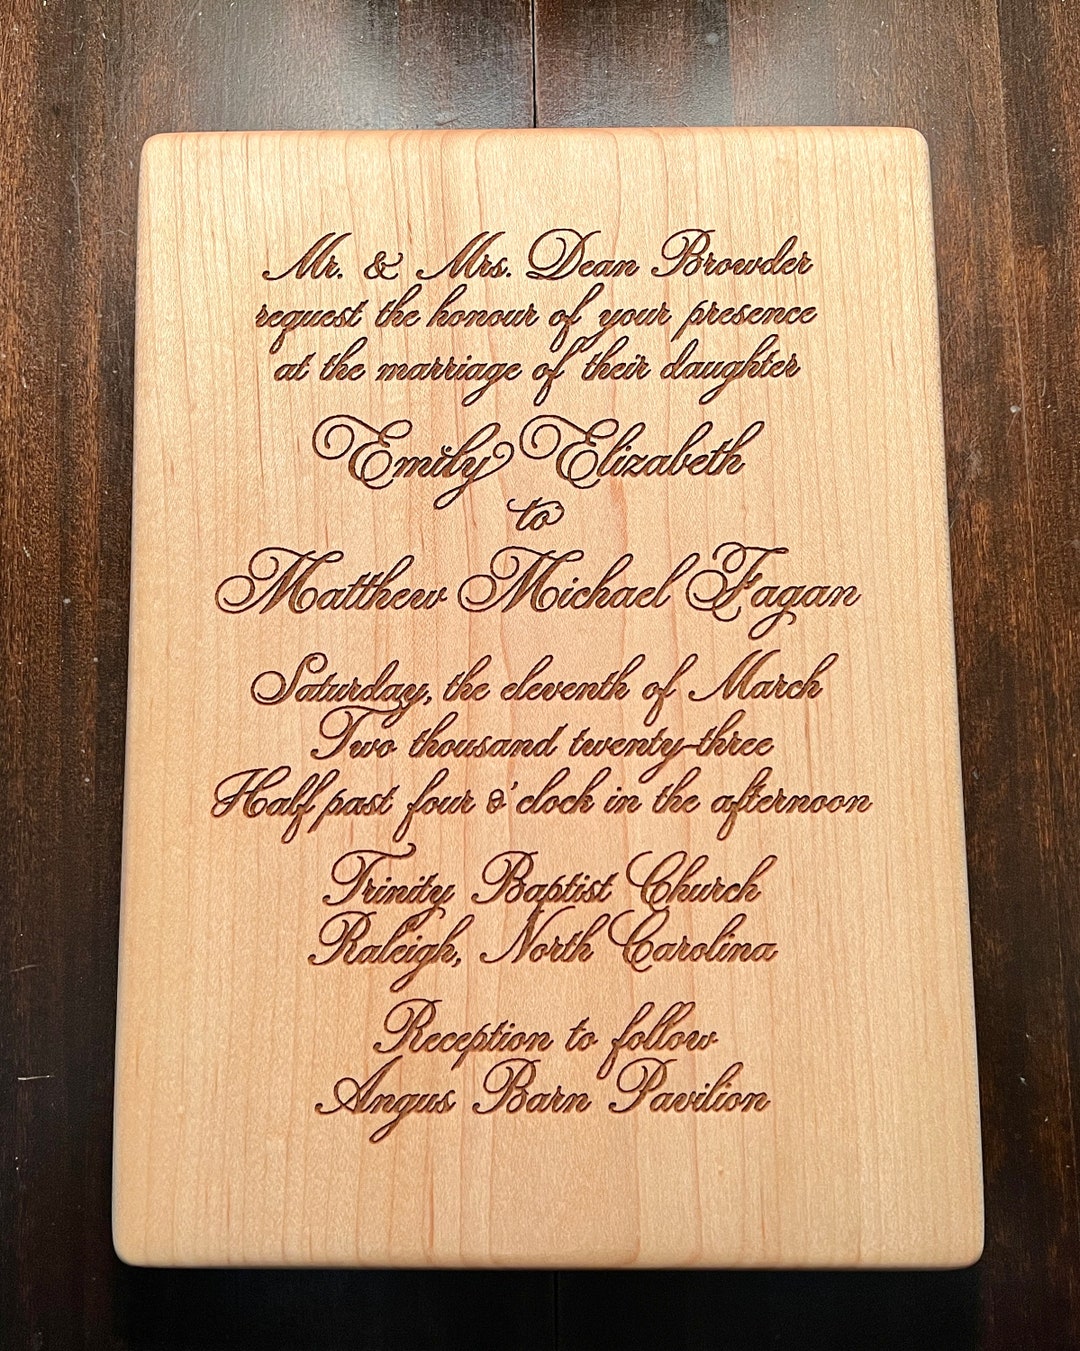 Mr. & Mrs. Dean Browder
request the honour of your presence
at the marriage of their daughter
Emily Elizabeth
to
Matthew Michael Fagan
Saturday, the eleventh of March
Two thousand twenty-three
Half past four o'clock in the afternoon
Trinity Baptist Church
Raleigh, North Carolina
Reception to follow
Angus Barn Pavilion